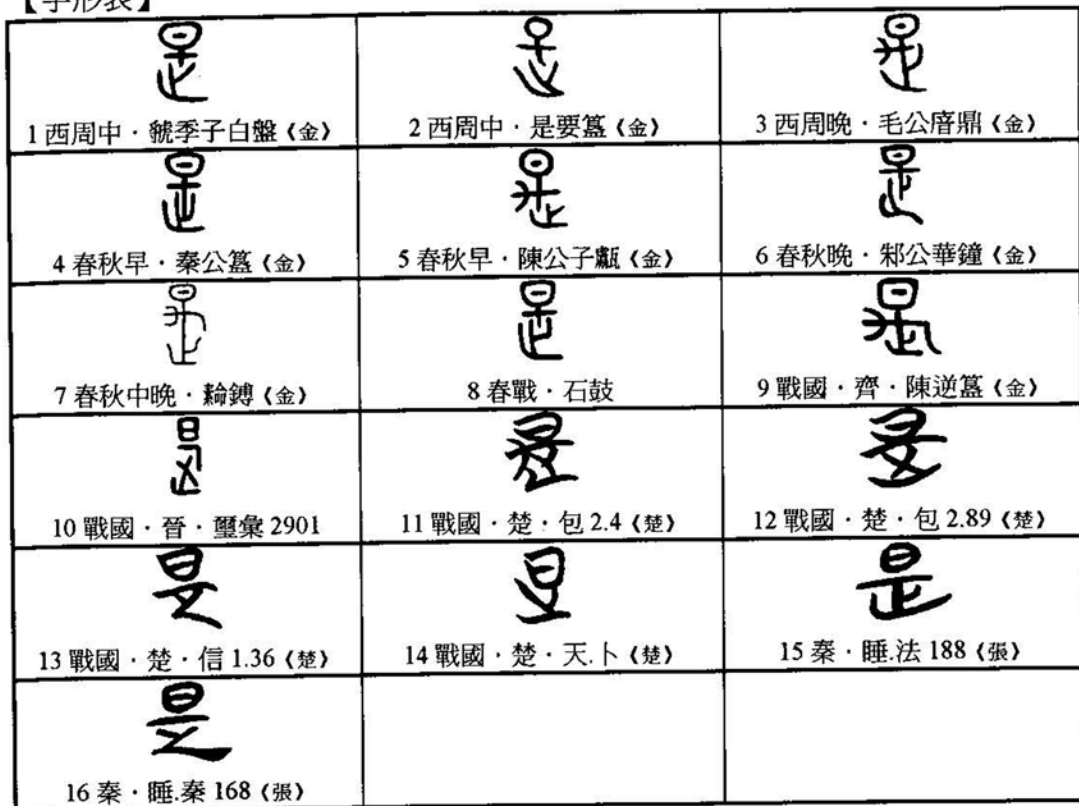 【字形表】
1 西周中．虢季子白盤《金》
2 西周中．是要簋《金》
3 西周晚．毛公𢉩鼎《金》
4 春秋早．秦公簋《金》
5 春秋早．陳公子甗《金》
6 春秋晚．邾公華鐘《金》
7 春秋中晚．𦅫鎛《金》
8 春戰．石鼓
9 戰國．齊．陳逆簋《金》
10 戰國．晉．璽彙 2901
11 戰國．楚．包 2.4《楚》
12 戰國．楚．包 2.89《楚》
13 戰國．楚．信 1.36《楚》
14 戰國．楚．天.卜《楚》
15 秦．睡.法 188《張》
16 秦．睡.秦 168《張》